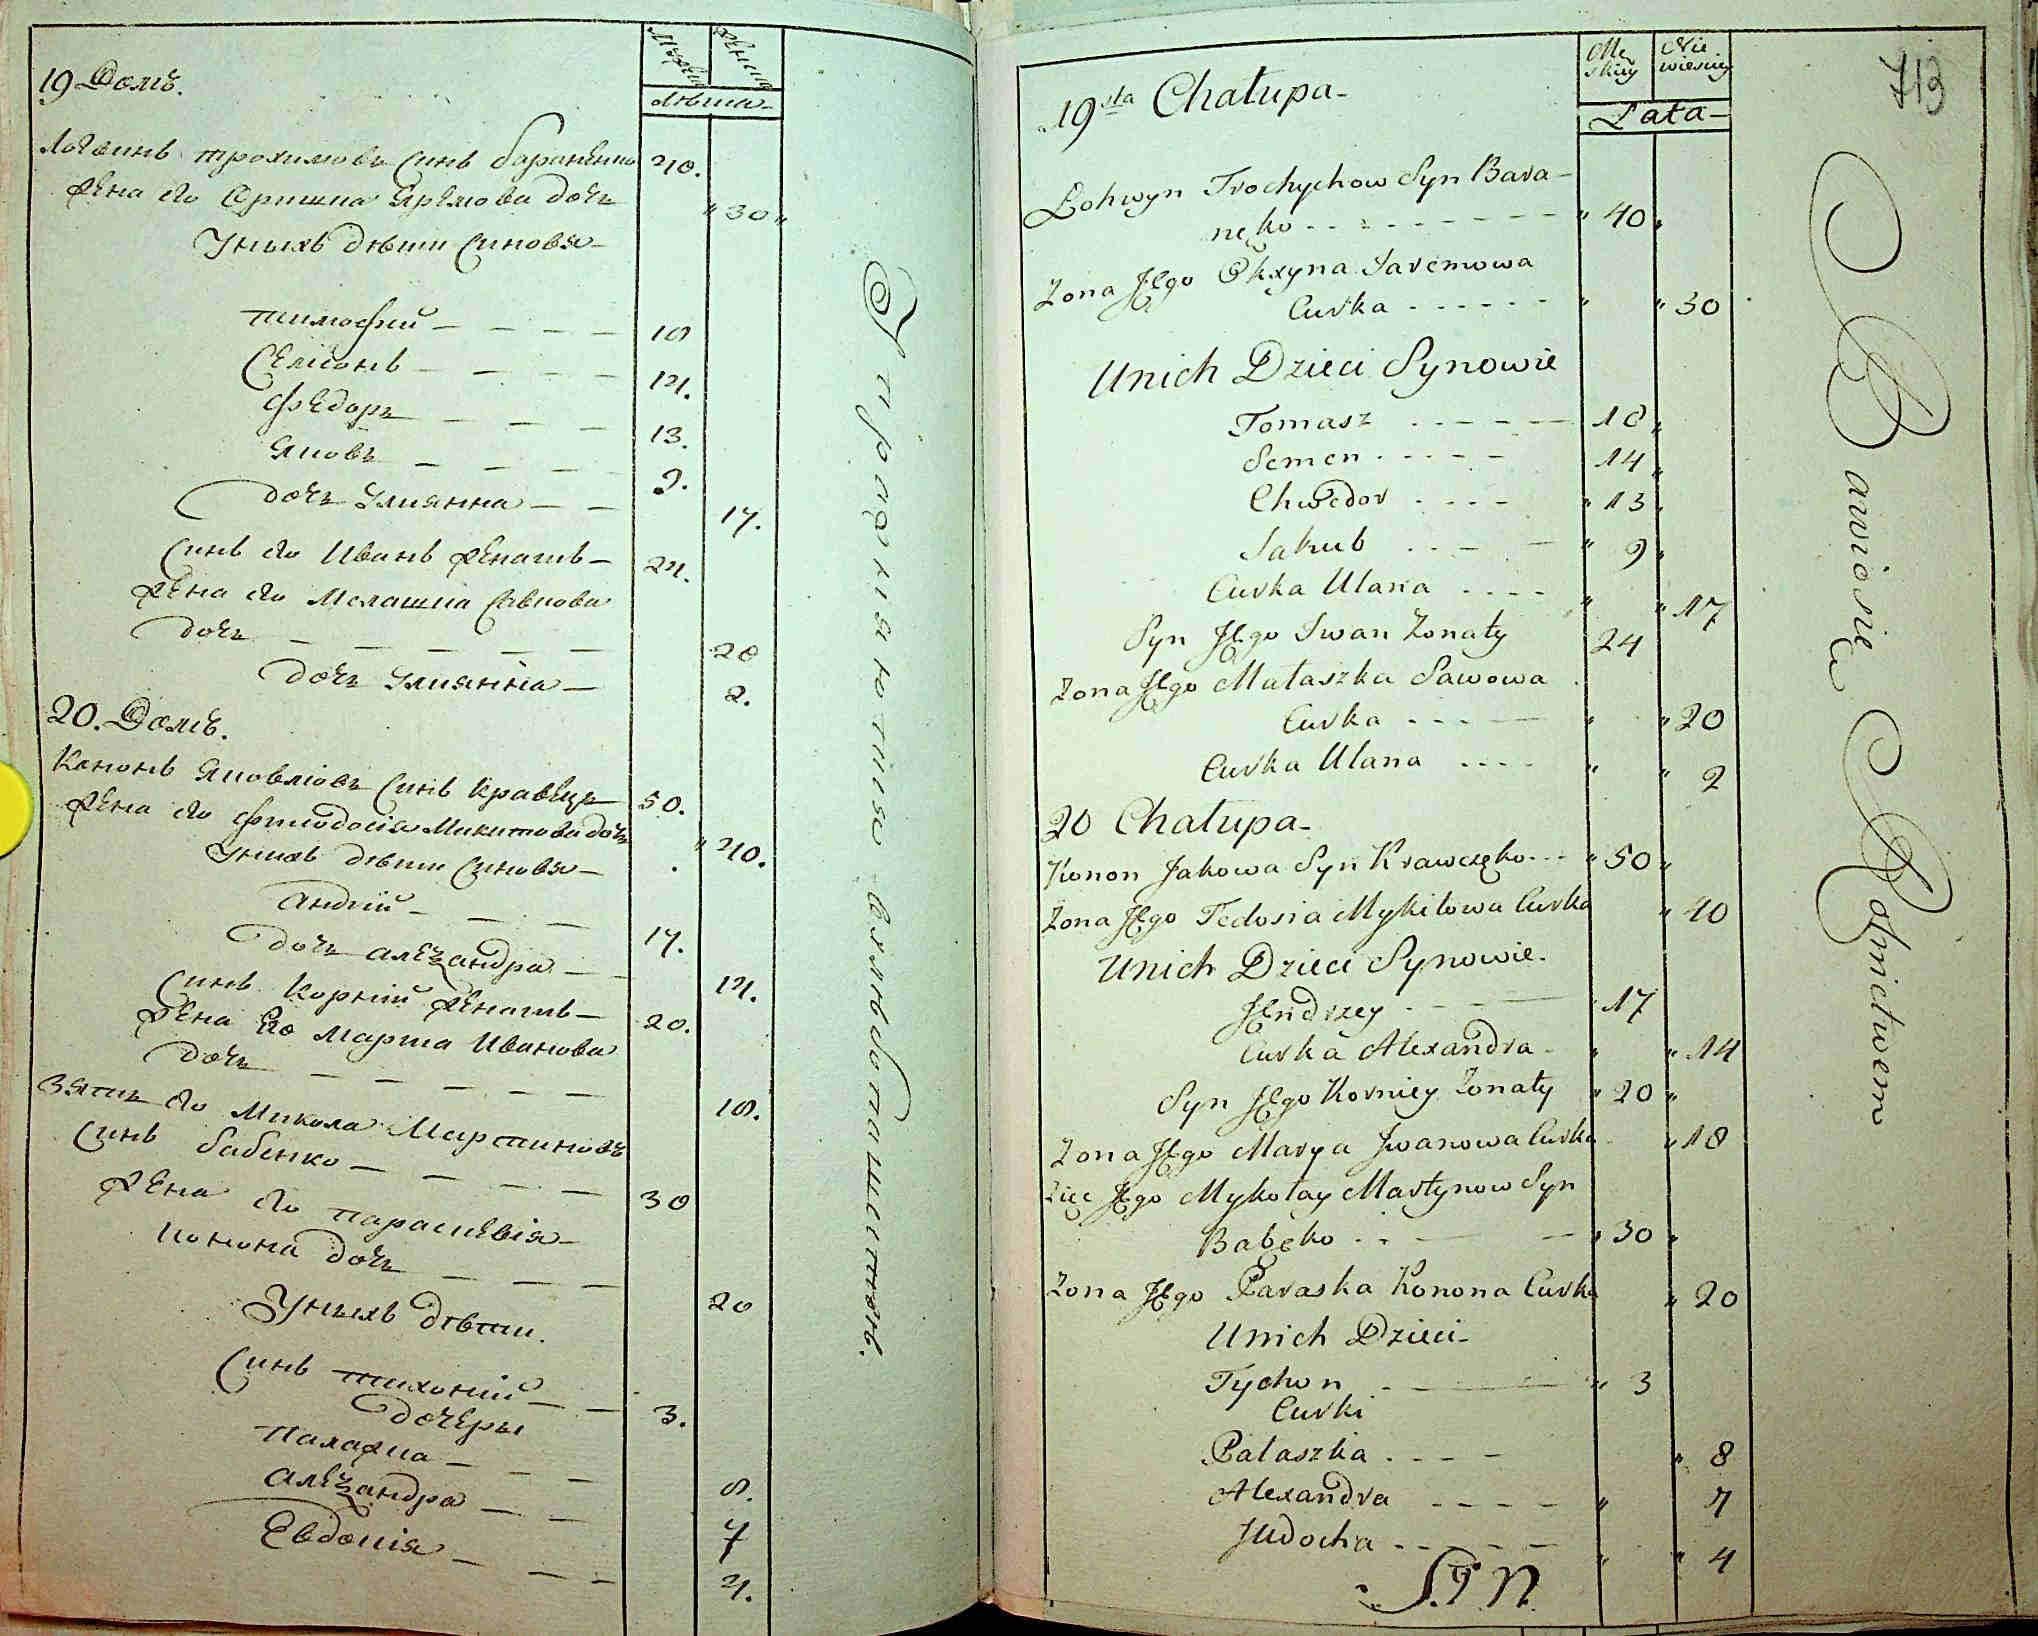 19 Домъ.
Мужеска
Женска
лѣта
Логвинъ трохимовъ синъ бараненко 40.
жена его Оришка Яремова дочь 30
У нихъ дѣти синовя
тимофий 18
Семіонъ 14.
Федоръ 13.
Яковъ 9.
дочь Улиянна 17.
Синъ его Иванъ женатъ 24.
жена его Мелашка Савкова
дочь 20
дочь Улиянна 2.
20. Домъ.
Кононъ Яковлювъ синъ Кравецъ 50.
жена его Феодосія Микитова дочь 40.
У нихъ дѣти синовя
Андрій 17.
дочь алеѯандра 14.
Синъ Корній женатъ 20.
жена его Марта Иванова
дочь 18.
Зять его Микола Мартиновъ
синъ бабенко 30
жена его параскевія
Конона дочь 20
У нихъ дѣти.
Синъ тихоній 3.
дочеры
Палажка 8.
алеѯандра 7
Евдокія 4.
упражняютца въ хлѣбопашествѣ.
713
Męskiey
Niewiesciey
Lata
19sta Chałupa
Łohwyn Trochychow Syn Bara-
nęko 40
Zona Jego Okxyna Jaremowa
Curka 30
Unich Dzieci Synowie
Tomasz 18
Semen 14
Chwedor 13
Jakub 9
Curka Ulana 17
Syn Jego Iwan Zonaty 24
Zona Jego Małaszka Sawowa
Curka 20
Curka Ulana 2
20 Chałupa
Konon Jakowa Syn Krawczęko 50
Zona Jego Tedosia Mykitowa Curka 40
Unich Dzieci Synowie.
Jendrzey 17
Curka Alexandra 14
Syn Jego Korniey Zonaty 20
Zona Jego Marya Jwanowa Curka 18
Zięc Jego Mykołay Martynow Syn
Babęko 30
Zona Jego Paraska Konona Curka 20
Unich Dzieci
Tychon 3
Curki
Pałaszka 8
Alexandra 7
Judocha 4
S.P.N.
Bawiosię Rolnictwem